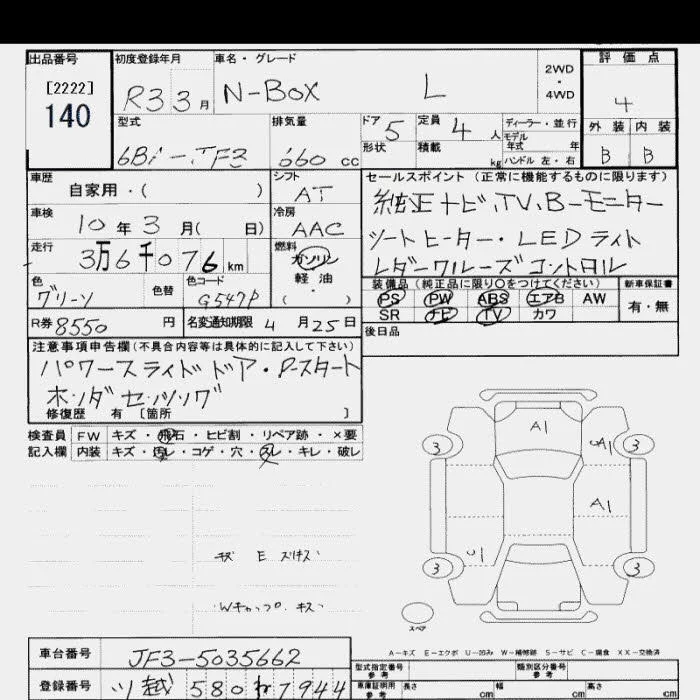 出品番号
[2222]
140
初度登録年月
R3 3月
車名・グレード
N-BOX L
2WD
・
4WD
評価点
4
外装 内装
B B
型式
6BA-JF3
排気量
660 cc
ドア 5
形状
定員 4 人
積載 kg
ディーラー・並行
モデル
年式 年
ハンドル 左・右
車歴
自家用・( )
シフト
AT
車検
10年3月( 日)
冷房
AAC
走行
3万6千076 km
燃料
ガソリン
軽油
( ・ )
色
グリーン
色替
色コード
G547P
R券 8550 円
名変通知期限 4月25日
セールスポイント(正常に機能するものに限ります)
純正ナビ、TV、B-モニター
シートヒーター・LEDライト
レダークルーズコントロル
装備品(純正品に限り○をつけてください)
PS PW ABS エアB AW
SR ナビ TV カワ
新車保証書
有・無
後日品
注意事項申告欄(不具合内容等は具体的に記入して下さい)
パワースライドドア・Pースタート
ホンダセンシング
修復歴 有 [箇所 ]
検査員 FW キズ・飛石・ヒビ割・リペア跡・×要
記入欄 内装 キズ・汚レ・コゲ・穴・スレ・キレ・破レ
キズ E ズリキズ
Wキャップ キズ
A1
A1
A1
U1
3
3
3
3
スペア
A-キズ E-エクボ U-凹み W-補修跡 S-サビ C-腐食 XX-交換済
車台番号 JF3-5035662
登録番号 川越 580 わ 7944
型式指定番号
参考
類別区分番号
参考
車庫証明用
参考
長さ cm
幅 cm
高さ cm